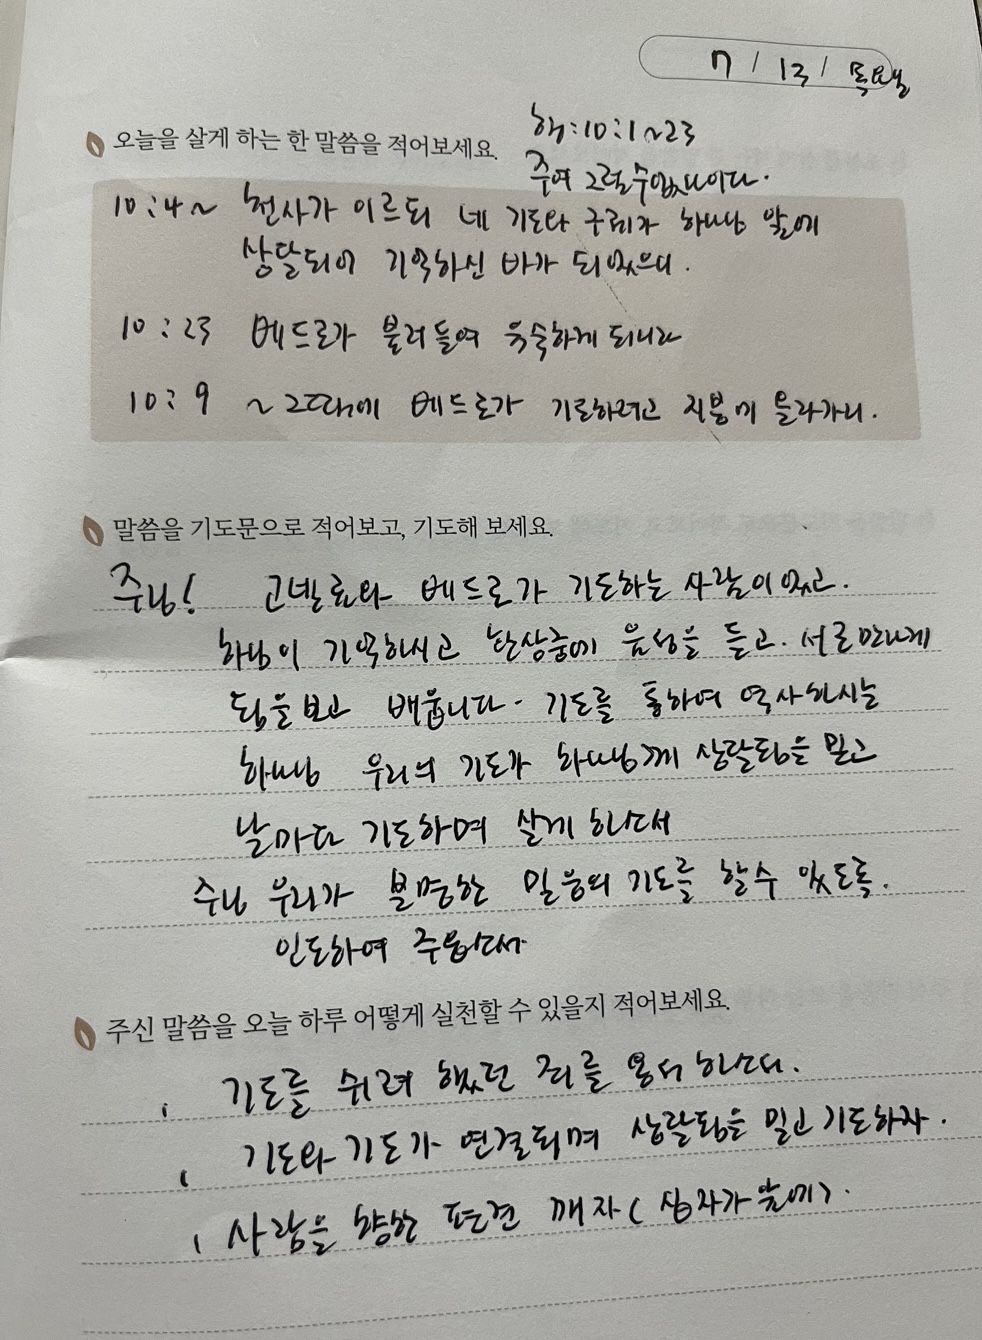 7 / 13 / 목요일
오늘을 살게 하는 한 말씀을 적어보세요.
행:10:1~23
주여 그럴수없나이다.
10:4~ 천사가 이르되 네 기도와 구제가 하나님 앞에
상달되어 기억하신 바가 되었으니.
10:23 베드로가 불러들여 유숙하게 되니라
10:9 ~그때에 베드로가 기도하려고 지붕에 올라가니.
말씀을 기도문으로 적어보고, 기도해 보세요.
주님! 고넬료와 베드로가 기도하는 사람이었고.
하님이 기억하시고 환상중에 음성을 듣고. 서로만나게
됨을보고 배웁니다. 기도를 통하여 역사하시는
하나님 우리의 기도가 하나님께 상달됨을 믿고
날마다 기도하며 살게 하소서
주님 우리가 분명한 믿음의 기도를 할수 있도록.
인도하여 주옵소서.
주신 말씀을 오늘 하루 어떻게 실천할 수 있을지 적어보세요.
기도를 쉬려 했던 죄를 용서 하소서.
기도와 기도가 연결되며 상달됨을 믿고 기도하자.
사람을 향한 편견 깨자 (십자가 앞에).